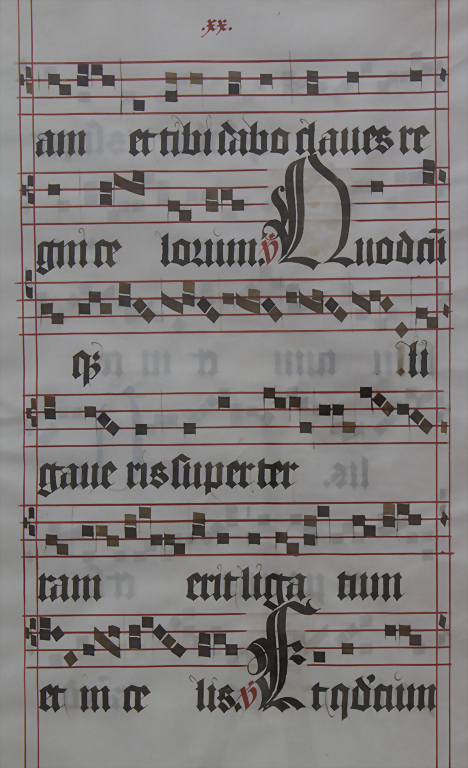 .xx.
am et tibi dabo claues re
gni ce lorum. ℣ Quodcū
qȝ li
gaue ris super ter
ram erit liga tum
et in ce lis. ℣ Et qd̄cum